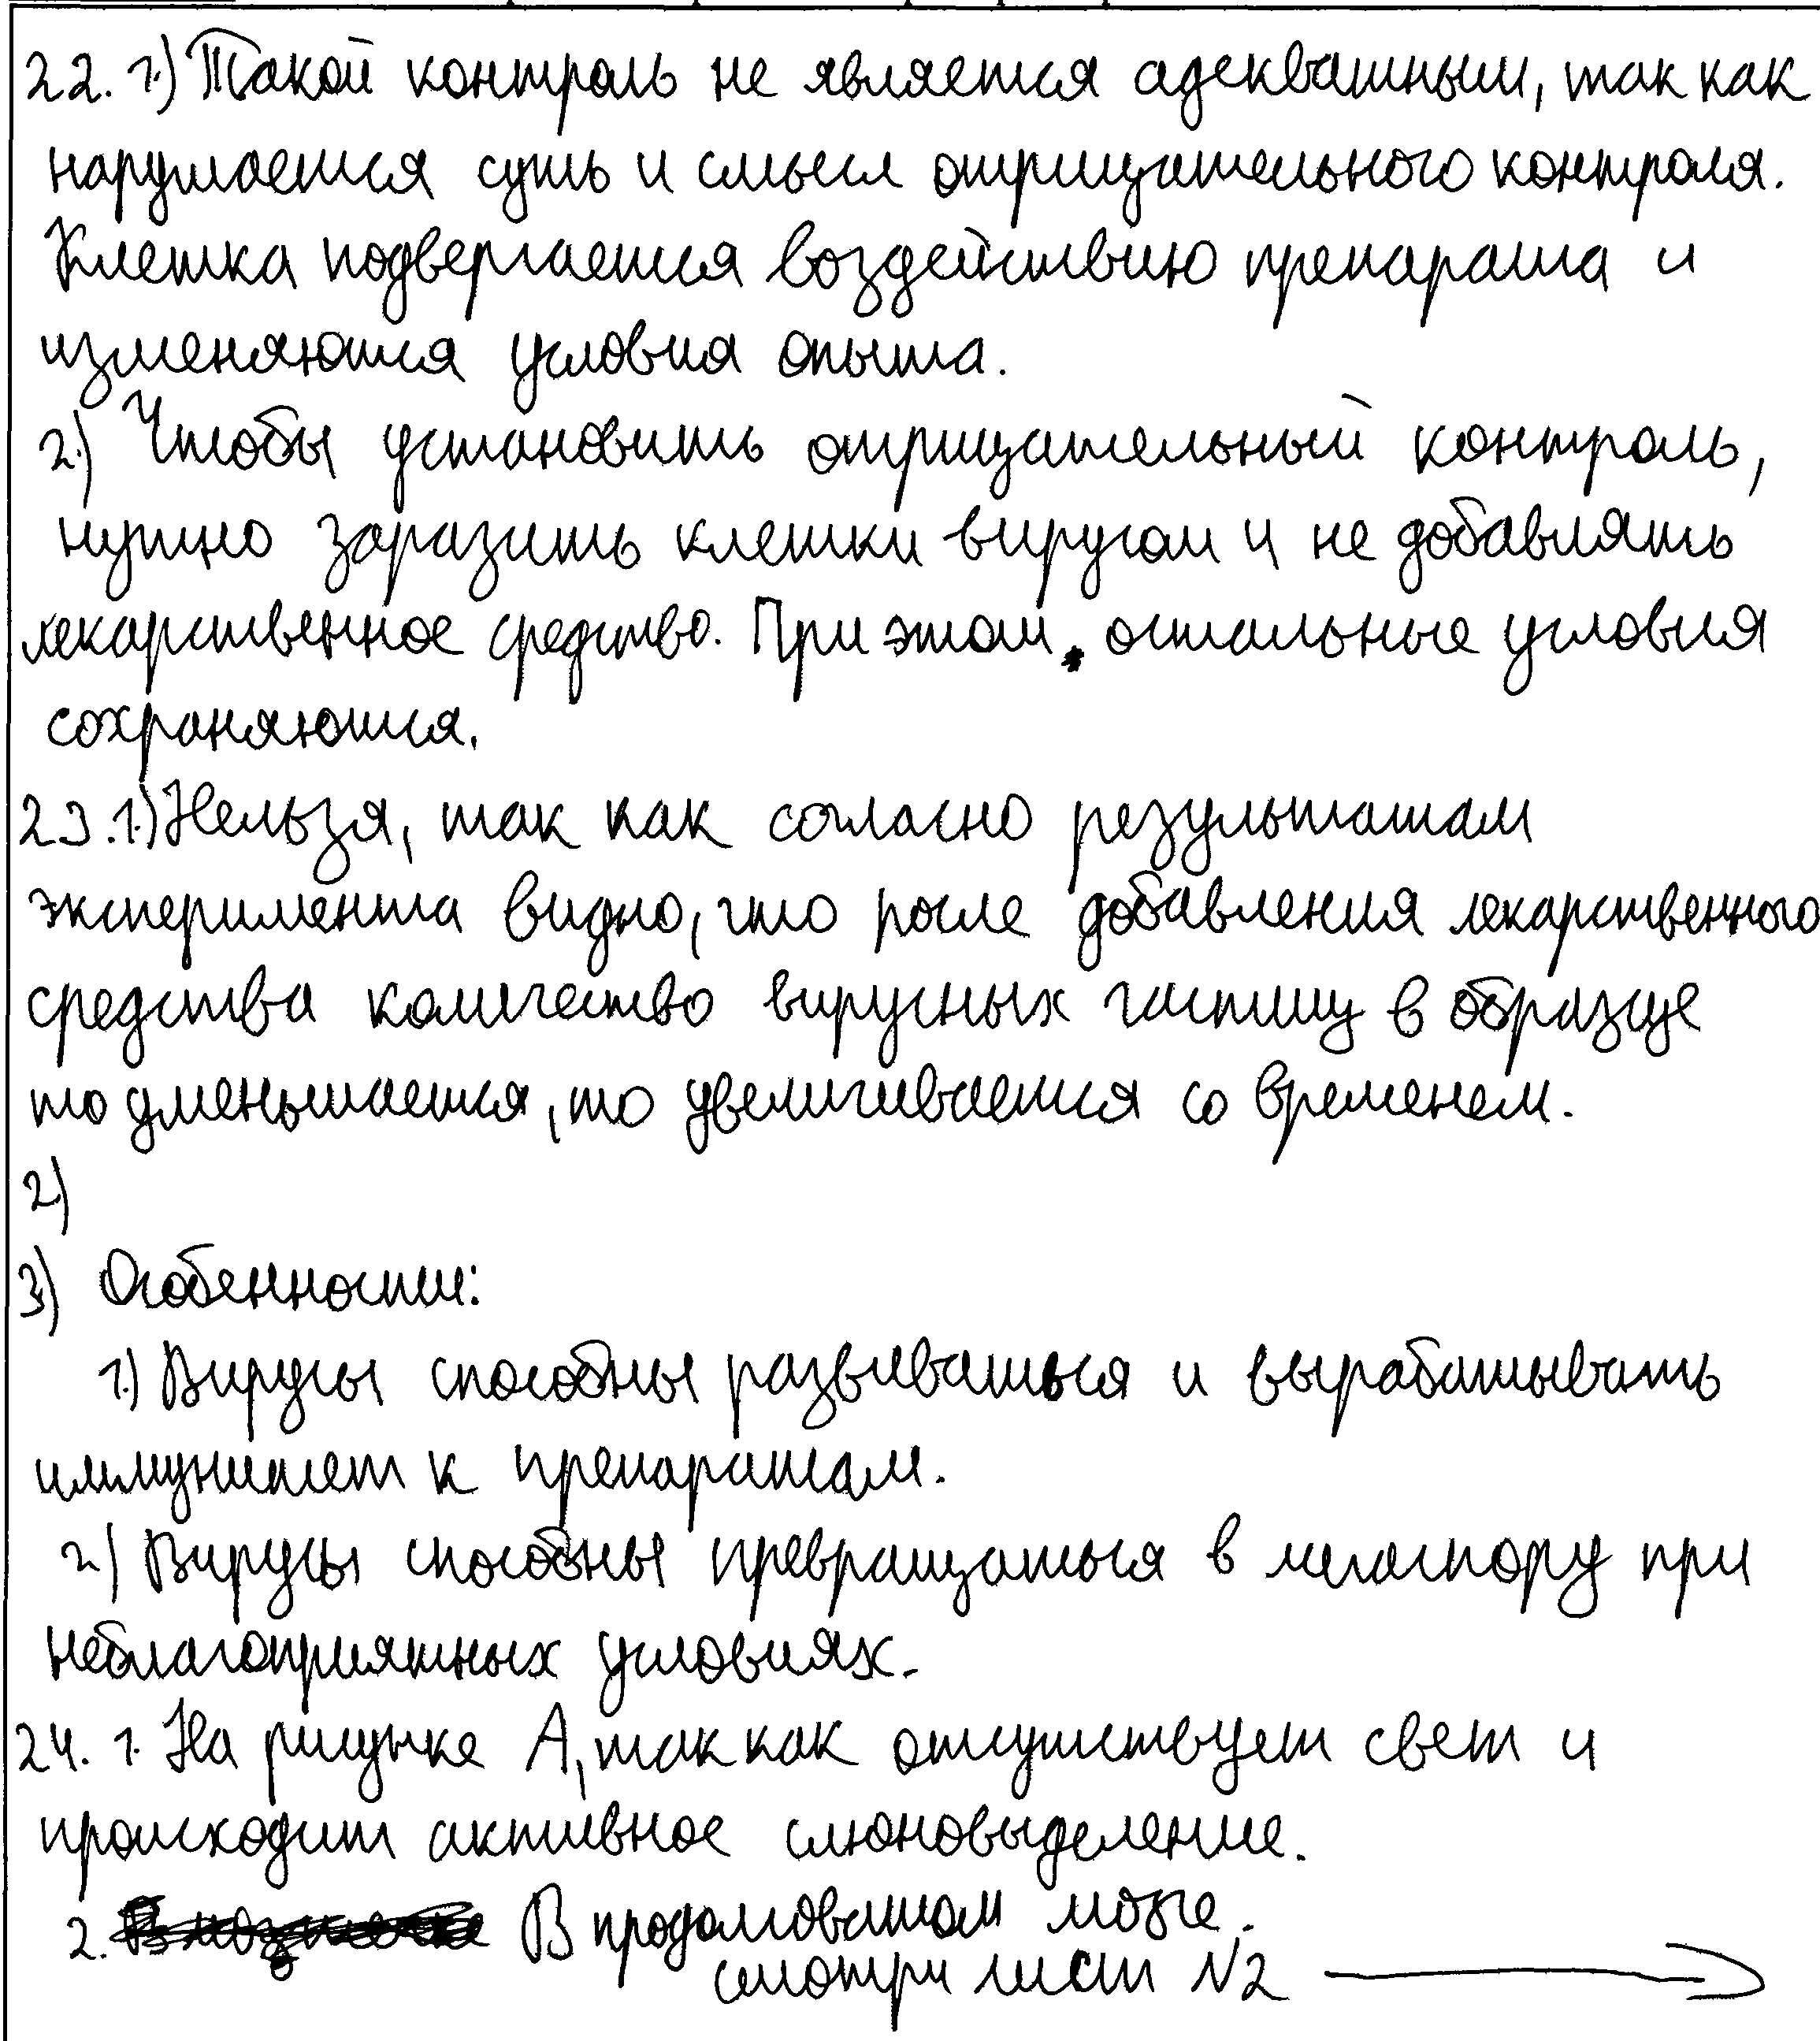 22. 1.) Такой контроль не является адекватным, так как
нарушается суть и смысл отрицательного контроля.
Клетка подвергается воздействию препарата и
изменяются условия опыта.
2.) Чтобы установить отрицательный контроль,
нужно заразить клетки вирусом и не добавлять
лекарственное средство. При этом остальные условия
сохраняются.
23. 1.) Нельзя, так как согласно результатам
эксперимента видно, что после добавления лекарственного
средства количество вирусных частиц в образце
то уменьшается, то увеличивается со временем.
2)
3) Особенности:
1.) Вирусы способны развиваться и вырабатывать
иммунитет к препаратам.
2) Вирусы способны превращаться в мегаспору при
неблагоприятных условиях.
24. 1. На рисунке А, так как отсутствует свет и
происходит активное слюновыделение.
2. В продолговатом мозге.
смотри лист №2